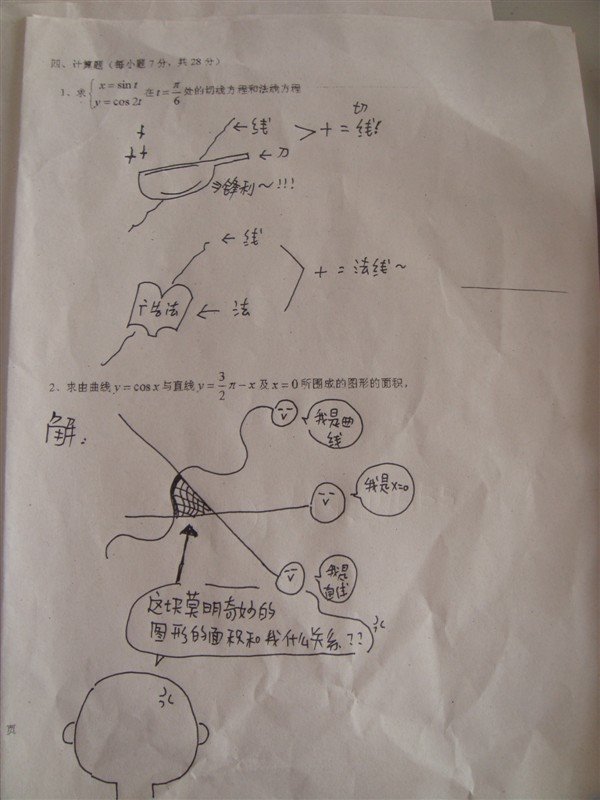 四、计算题（每小题7分，共28分）
1、求{x = sin t y = cos 2t 在 t = π/6 处的切线方程和法线方程
← 线
← 刀
⇒锋利～!!!
+ = 切线!
← 线
广告法 ← 法
+ = 法线～
2、求由曲线 y = cos x 与直线 y = 3/2 π - x 及 x = 0 所围成的图形的面积，
解：
我是曲
线
我是x=0
我是
直线
这块莫明奇妙的
图形的面积和我什么关系??
页